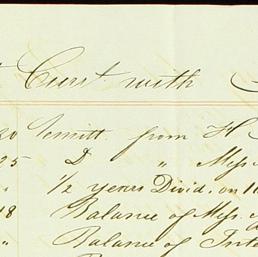 Curt. with
20 Remitt. from H
25 D " Mess
" 1/2 years Divid; on 1
18 Balance of Mess.
" Balance of Inte